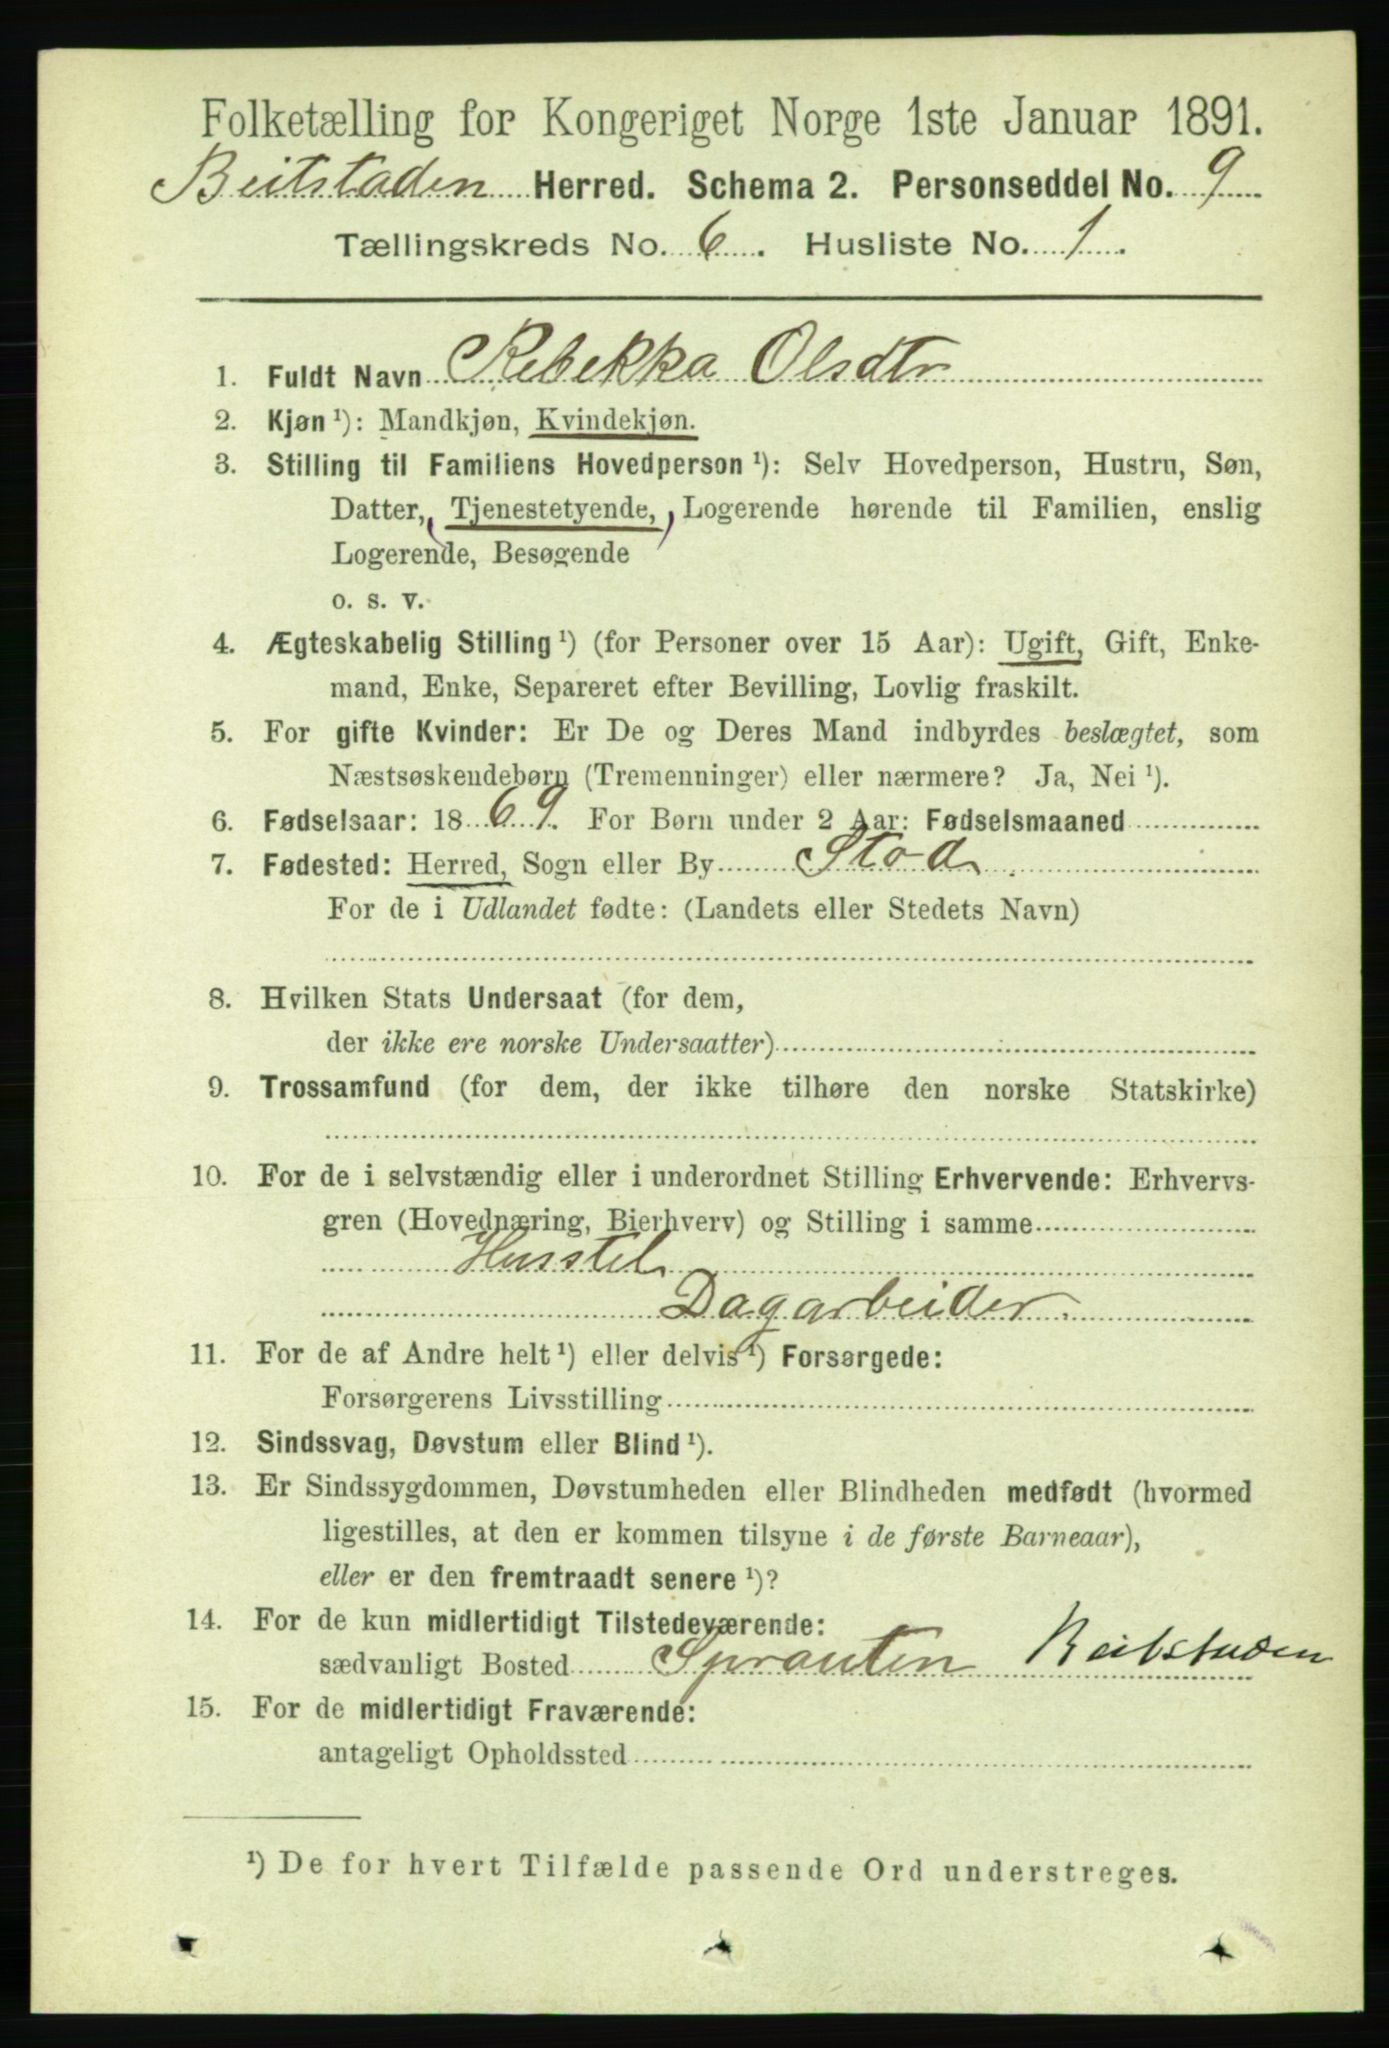 Folketælling for Kongeriget Norge 1ste Januar 1891.
Beitstaden Herred. Schema 2. Personseddel No. 9
Tællingskreds No. 6. Husliste No. 1.
1. Fuldt Navn Rebekka Olsdtr
2. Kjøn ¹): Mandkjøn, Kvindekjøn.
3. Stilling til Familiens Hovedperson ¹): Selv Hovedperson, Hustru, Søn,
Datter, Tjenestetyende, Logerende hørende til Familien, enslig
Logerende, Besøgende
o. s. v.
4. Ægteskabelig Stilling ¹) (for Personer over 15 Aar): Ugift, Gift, Enke-
mand, Enke, Separeret efter Bevilling, Lovlig fraskilt.
5. For gifte Kvinder: Er De og Deres Mand indbyrdes beslægtet, som
Næstsøskendebørn (Tremenninger) eller nærmere? Ja, Nei ¹).
6. Fødselsaar: 1869. For Børn under 2 Aar: Fødselsmaaned
7. Fødested: Herred, Sogn eller By Stod
For de i Udlandet fødte: (Landets eller Stedets Navn)
8. Hvilken Stats Undersaat (for dem,
der ikke ere norske Undersaatter)
9. Trossamfund (for dem, der ikke tilhøre den norske Statskirke)
10. For de i selvstændig eller i underordnet Stilling Erhvervende: Erhvervs-
gren (Hovednæring, Bierhverv) og Stilling i samme
Husstel
Dagarbeider
11. For de af Andre helt ¹) eller delvis ¹) Forsørgede:
Forsørgerens Livsstilling
12. Sindssvag, Døvstum eller Blind ¹).
13. Er Sindssygdommen, Døvstumheden eller Blindheden medfødt (hvormed
ligestilles, at den er kommen tilsyne i de første Barneaar),
eller er den fremtraadt senere ¹)?
14. For de kun midlertidigt Tilstedeværende:
sædvanligt Bosted Sprauten Beitstaden
15. For de midlertidigt Fraværende:
antageligt Opholdssted
¹) De for hvert Tilfælde passende Ord understreges.